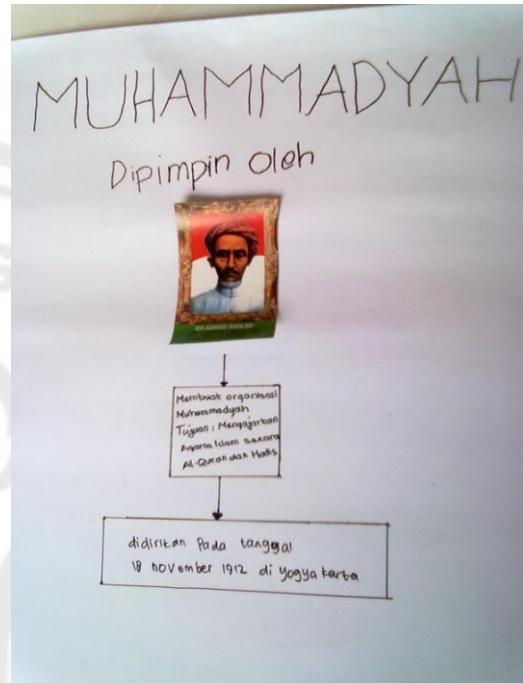 MUHAMMADYAH
Dipimpin Oleh
KH AHMAD DAHLAN
Membuat organisasi
Muhammadyah
Tujuan : Mengajarkan
Agama Islam secara
Al-Quran dan Hadis
didirikan Pada tanggal
18 november 1912 di Yogyakarta